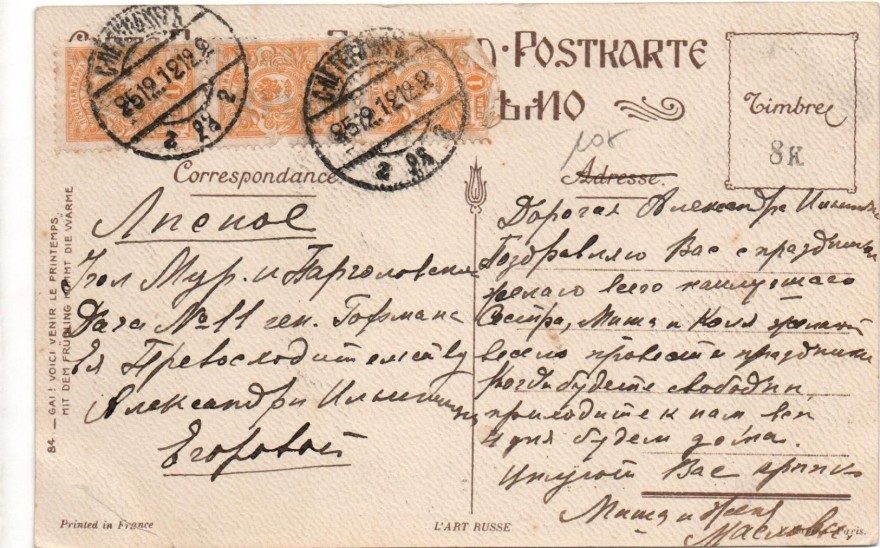 POSTKARTE
Timbre
108
8к
С.ПЕТЕРБУРГЪ
25.12.12
С.ПЕТЕРБУРГЪ
25.12.12
Correspondance
Adresse.
Лѣсное
Угол Мур. и Парголовской
Дача № 11 ген. Гофмана
Ея Превосходительству
Александрѣ Ильинишнѣ
Егоровой
Дорогая Александра
Поздравляю Вас с праздником
желаю всего наилучшаго
Сестра, Миша и Коля желают
весело провести праздники
Когда будете свободны,
приходите к нам все
4 дня будем дома.
Целуют Вас крепко
Миша и Женя
Масловы.
84 — GAI! VOICI VENIR LE PRINTEMPS.
MIT DEM FRÜHLING KOMMT DIE WÄRME
Printed in France
L'ART RUSSE
Paris.